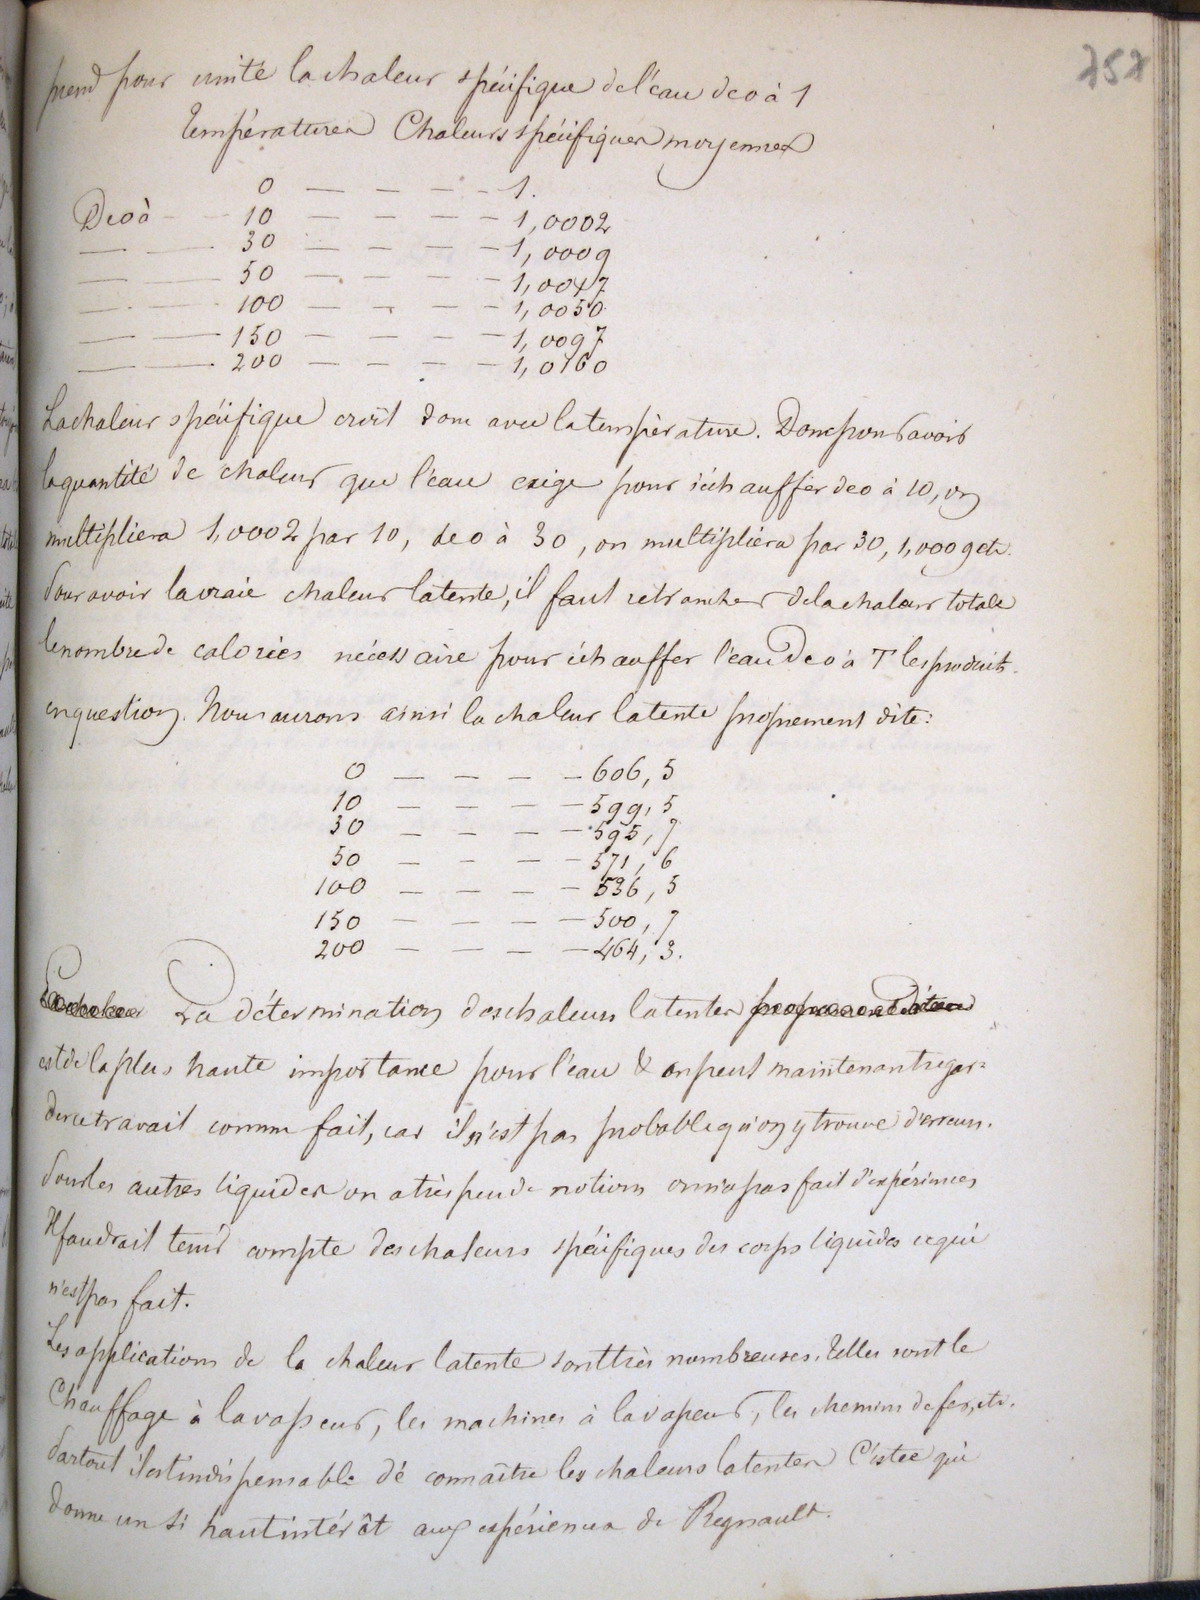 757
prend pour unité la chaleur spécifique de l'eau de 0 à 1
Températures Chaleurs spécifiques moyennes
0 — — — — 1.
De 0 à — 10 — — — — 1,0002
— — 30 — — — — 1,0009
— — 50 — — — — 1,0047
— — 100 — — — — 1,0050
— — 150 — — — — 1,0097
— — 200 — — — — 1,0160
La chaleur spécifique croît donc avec la température. Donc pour savoir
la quantité de chaleur que l'eau exige pour s'échauffer de 0 à 10, on
multipliera 1,0002 par 10, de 0 à 30, on multipliera par 30, 1,0009 etc.
Pour avoir la vraie chaleur latente, il faut retrancher de la chaleur totale
le nombre de calories nécessaire pour échauffer l'eau de 0 à T les produits
en question. Nous aurons ainsi la chaleur latente proprement dite:
0 — — — — 606,5
10 — — — — 599,5
30 — — — — 595,7
50 — — — — 571,6
100 — — — — 536,5
150 — — — — 500,7
200 — — — — 464,3.
La détermination des chaleurs latentes proprement dites
est de la plus haute importance pour l'eau & on peut maintenant regar=
der ce travail comme fait, car il n'est pas probable qu'on y trouve d'erreurs.
Pour les autres liquides on a très peu de notions on n'a pas fait d'expériences
Il faudrait tenir compte des chaleurs spécifiques des corps liquides ce qui
n'est pas fait.
Les applications de la chaleur latente sont très nombreuses. Telles sont le
Chauffage à la vapeur, les machines à la vapeur, les chemins de fer, etc.
Partout il est indispensable de connaître les chaleurs latentes C'est ce qui
donne un si haut intérêt aux expériences de Regnault.